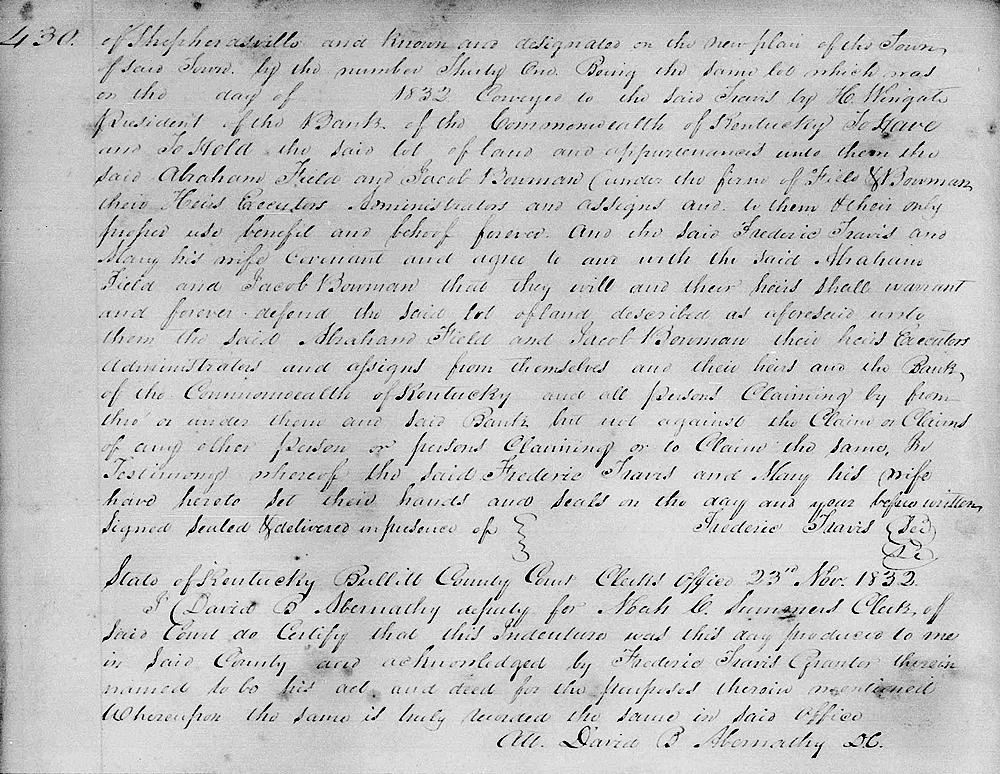 430.
of Shepherdsville and Known and designated on the new plan of the Town
of said Town. by the number Thirty One. Being the same lot which was
on the day of 1832 Conveyed to the said Travis by H. Wingate
President of the Bank of the Commonwealth of Kentucky To Have
and To Hold the said lot of land and appurtenances unto them the
said Abraham Field and Jacob Bowman (under the firm of Field & Bowman
their Heirs Executors Administrators and assigns and to them & their only
proper use benefit and behoof forever. And the said Frederic Travis and
Mary his wife covenant and agree to and with the said Abraham
Field and Jacob Bowman that they will and their heirs shall warrant
and forever defend the said lot of land described as aforesaid unto
them the said Abraham Field and Jacob Bowman their heirs Executors
Administrators and assigns from themselves and their heirs and the Bank
of the Commonwealth of Kentucky and all persons Claiming by from
thro' or under them and said Bank but not against the Claim or Claims
of any other person or persons Claiming or to Claim the same. In
Testimony whereof the said Frederic Travis and Mary his wife
have hereto set their hands and seals on the day and year before written
Signed sealed & delivered in presence of Frederic Travis
State of Kentucky Bullitt County Court Clerks Office 23rd Nov. 1832.
I David B Abernathy deputy for Noah C. Summers Clerk of
said Court do Certify that this Indenture was this day produced to me
in said County and acknowledged by Frederic Travis Grantor therein
named to be his act and deed for the purposes therein mentioned
Whereupon the same is truly recorded the same in said office
Att. David B Abernathy DC.